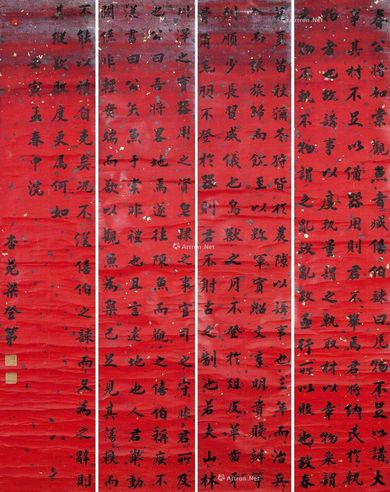 春公將如棠觀魚者臧僖伯諫曰凡物不足以講大
事其材不足以備器用則君不舉焉君將納民於軌
物者也故講事以度軌量謂之軌取材以章物采謂
之物不軌不物謂之亂政亂政亟行所以敗也故春
蒐夏苗秋獮冬狩皆於農隙以講事也三年而治兵
入而振旅歸而飲至以數軍實昭文章明貴賤辨等
列順少長習威儀也鳥獸之肉不登於俎皮革齒牙
骨角毛羽不登於器則君不射古之制也若夫山林
川澤之實器用之資皂隸之事官司之守非君所及
也公曰吾將略地焉遂往陳魚而觀之僖伯稱疾不
從書曰公矢魚于棠非禮也且言遠地也人君舉動
關係非輕而以觀魚為樂已足見其蕩佚而
不能以禮自克矣況不從僖伯之諫而又為之辭則
其縱欲敗度更為何如
甲寅孟春中浣
杏苑梁登第